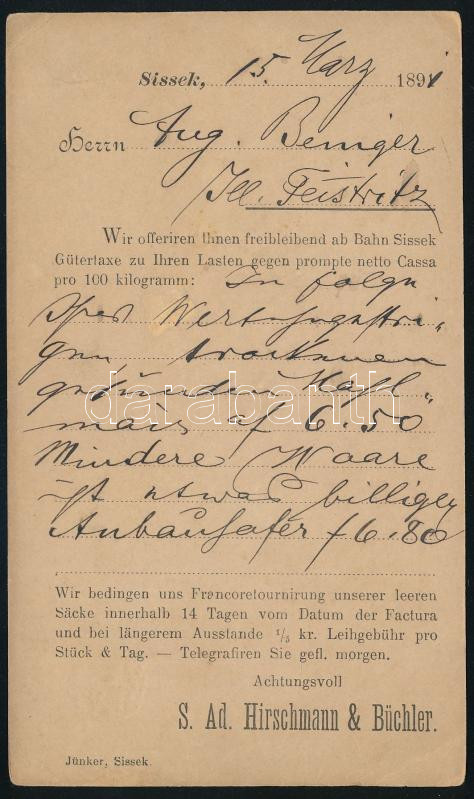 Sissek, 15. März 1891
Herrn Aug. Beniger
Ill. Feistritz
Wir offeriren Ihnen freibleibend ab Bahn Sissek
Gütertaxe zu Ihren Lasten gegen prompte netto Cassa
pro 100 kilogramm: In folge
Ihres Werthen gestri-
gen trockenen
gesunden Mahl-
mais af 6.50
Mindere Waare
ist etwas billiger
Anbauhafer f 6.80
Wir bedingen uns Francoretournirung unserer leeren
Säcke innerhalb 14 Tagen vom Datum der Factura
und bei längerem Ausstande 1/5 kr. Leihgebühr pro
Stück & Tag. — Telegrafiren Sie gefl. morgen.
Achtungsvoll
S. Ad. Hirschmann & Büchler.
Jünker, Sissek.
darabanth